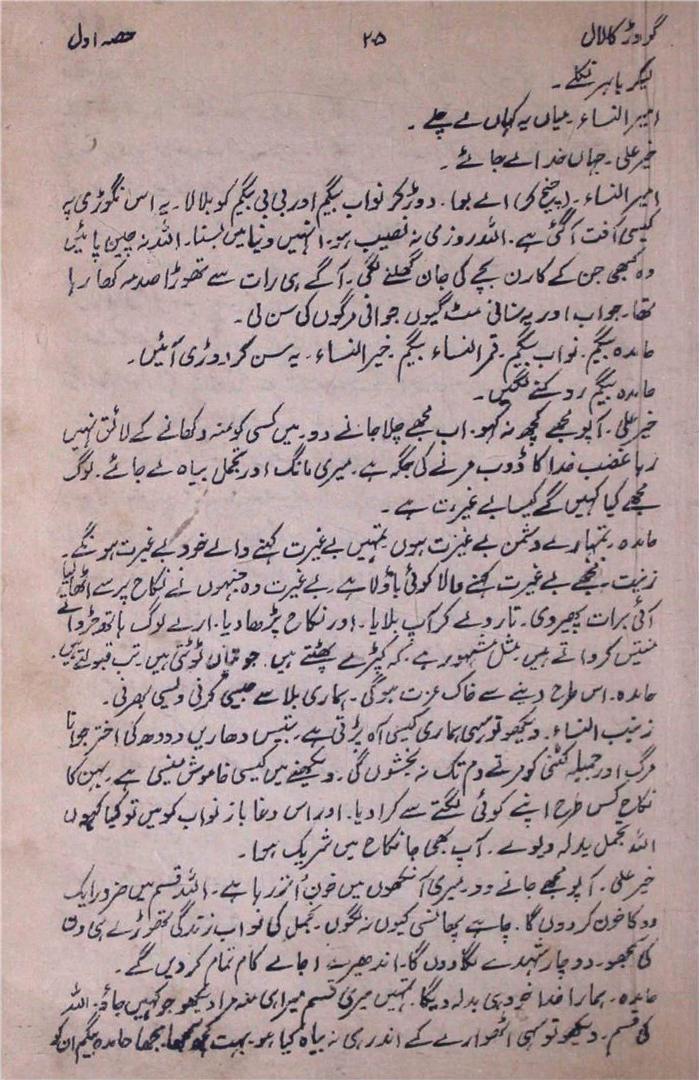 گودڑ کا لال ۲۵ حصہ اول
لیکر باہر نکلے۔
امیر النساء۔ میاں یہ کہاں لے چلے۔
خیر علی۔ جہاں خدا لے جائے۔
امیر النساء۔ (چیخ کر) اے بوا۔ دوڑ کر نواب بیگم اور بی بی بیگم کو بلالا۔ یہ اس نگوڑی پہ
کیسی آفت آگئی ہے۔ اللہ روزی نہ نصیب ہو۔ انہیں دنیا میں بسنا۔ اللہ نہ چین پائیں
وہ کبھی جن کے کارن بچے کی جان گھلنے لگی۔ آگے ہی رات سے تھوڑا صدمہ کھا رہا
تھا۔ جو اب اور یہ سنانی مٹ گیوں جوانی مرگوں کی سن لی۔
حامدہ بیگم۔ نواب بیگم۔ قمر النساء بیگم۔ خیر النساء۔ یہ سن کر دوڑی آئیں۔
حامدہ بیگم روکنے لگیں۔
خیر علی۔ آپو مجھے کچھ نہ کہو۔ اب مجھے چلا جانے دو۔ میں کسی کو منہ دکھانے کے لائق نہیں
رہا غضب خدا کا ڈوب مرنے کی جگہ ہے۔ میری مانگ اور تجمل بیاہ لے جائے۔ لوگ
مجھے کیا کہیں گے کیسا بے غیرت ہے۔
حامدہ۔ تمہارے دشمن بے غیرت ہوں تمہیں بے غیرت کہنے والے خود بے غیرت ہونگے۔
زینت۔ تجھے بے غیرت کہنے والا کوئی باؤلا ہے۔ بے غیرت وہ جنہوں نے نکاح پر سے اٹھا لیا
آئی برات پھیر دی۔ تار دے کر آپ بلایا۔ اور نکاح پڑھا دیا۔ ارے لوگ ہاتھ جڑواتے
منتیں کرواتے ہیں مثل مشہور ہے کہ کپڑے پھٹتے ہیں۔ جوتیاں ٹوٹتی ہیں تب قبولتے ہیں۔
حامدہ۔ اس طرح دینے سے خاک عزت ہوگی۔ ہماری بلا سے جیسی کرنی ویسی بھرنی۔
زینب النساء۔ دیکھو تو سہی ہماری کیسی آہ پڑتی ہے۔ بتیس دھاریں دودھ کی اختر جوانا
مرگ اور جمیلہ کٹنی کو مرتے دم تک نہ بخشوں گی۔ دیکھنے میں کیسی خاموش مسنی ہے۔ بہن کا
نکاح کس طرح اپنے کوئی لگتے سے کرا دیا۔ اور اس دغا باز نواب کو میں تو کیا کہوں
اللہ تجمل بدلہ دیوے۔ آپ بھی جا نکاح میں شریک ہوا۔
خیر علی۔ آپو مجھے جانے دو۔ میری آنکھوں میں خون اُتر رہا ہے۔ اللہ قسم میں ضرور ایک
دو کا خون کر دوں گا۔ چاہے پھانسی کیوں نہ لگوں۔ تجمل کی تو اب زندگی تھوڑے ہی دن
کی سمجھو۔ دو چار شہدے لگا دوں گا۔ اندھیرے اجالے کام تمام کر دیں گے۔
حامدہ۔ ہمارا خدا خود ہی بدلہ دیگا۔ تمہیں میری قسم میرا ہی منہ مرا دیکھو جو کہیں جاؤ۔ اللہ
کی قسم۔ دیکھو تو سہی اٹھوارے کے اندر ہی نہ بیاہ کیا ہو۔ بہت کچھ سمجھا بجھا حامدہ بیگم ان کو